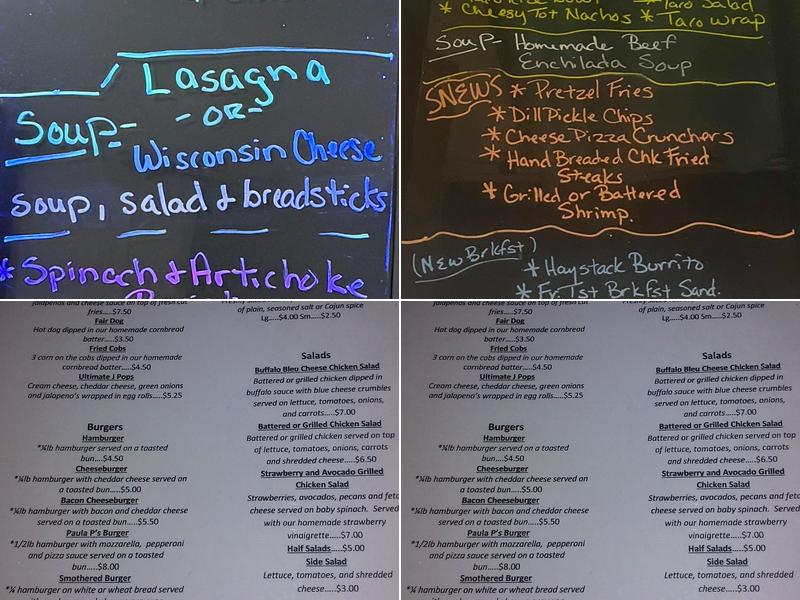 Lasagna
- OR -
Soup- Wisconsin Cheese
soup, salad & breadsticks
* Spinach & Artichoke
* Cheesy Tot Nachos * Taro Wrap
Soup- Homemade Beef
Enchilada Soup
SNEWS * Pretzel Fries
* Dill Pickle Chips
* Cheese Pizza Crunchers
* Hand Breaded Chk Fried
Steaks
* Grilled or Battered
Shrimp.
(New Brkfst)
* Haystack Burrito
* Fr. Tst Brkfst Sand.
jalapenos and cheese sauce on top of fresh cut
fries.....$7.50
Fair Dog
Hot dog dipped in our homemade cornbread
batter.....$3.50
Fried Cobs
3 corn on the cobs dipped in our homemade
cornbread batter.....$4.50
Ultimate J Pops
Cream cheese, cheddar cheese, green onions
and jalapeno's wrapped in egg rolls.....$5.25
Burgers
Hamburger
*¼lb hamburger served on a toasted
bun.....$4.50
Cheeseburger
*¼lb hamburger with cheddar cheese served on
a toasted bun.....$5.00
Bacon Cheeseburger
*¼lb hamburger with bacon and cheddar cheese
served on a toasted bun.....$5.50
Paula P's Burger
*1/2lb hamburger with mozzarella, pepperoni
and pizza sauce served on a toasted
bun.....$8.00
Smothered Burger
*¼ hamburger on white or wheat bread served
of plain, seasoned salt or Cajun spice
Lg.....$4.00 Sm.....$2.50
Salads
Buffalo Bleu Cheese Chicken Salad
Battered or grilled chicken dipped in
buffalo sauce with blue cheese crumbles
served on lettuce, tomatoes, onions,
and carrots.....$7.00
Battered or Grilled Chicken Salad
Battered or grilled chicken served on top
of lettuce, tomatoes, onions, carrots
and shredded cheese.....$6.50
Strawberry and Avocado Grilled
Chicken Salad
Strawberries, avocados, pecans and feta
cheese served on baby spinach. Served
with our homemade strawberry
vinaigrette.....$7.00
Half Salads.....$5.00
Side Salad
Lettuce, tomatoes, and shredded
cheese.....$3.00
jalapenos and cheese sauce on top of fresh cut
fries.....$7.50
Fair Dog
Hot dog dipped in our homemade cornbread
batter.....$3.50
Fried Cobs
3 corn on the cobs dipped in our homemade
cornbread batter.....$4.50
Ultimate J Pops
Cream cheese, cheddar cheese, green onions
and jalapeno's wrapped in egg rolls.....$5.25
Burgers
Hamburger
*¼lb hamburger served on a toasted
bun.....$4.50
Cheeseburger
*¼lb hamburger with cheddar cheese served on
a toasted bun.....$5.00
Bacon Cheeseburger
*¼lb hamburger with bacon and cheddar cheese
served on a toasted bun.....$5.50
Paula P's Burger
*1/2lb hamburger with mozzarella, pepperoni
and pizza sauce served on a toasted
bun.....$8.00
Smothered Burger
*¼ hamburger on white or wheat bread served
of plain, seasoned salt or Cajun spice
Lg.....$4.00 Sm.....$2.50
Salads
Buffalo Bleu Cheese Chicken Salad
Battered or grilled chicken dipped in
buffalo sauce with blue cheese crumbles
served on lettuce, tomatoes, onions,
and carrots.....$7.00
Battered or Grilled Chicken Salad
Battered or grilled chicken served on top
of lettuce, tomatoes, onions, carrots
and shredded cheese.....$6.50
Strawberry and Avocado Grilled
Chicken Salad
Strawberries, avocados, pecans and feta
cheese served on baby spinach. Served
with our homemade strawberry
vinaigrette.....$7.00
Half Salads.....$5.00
Side Salad
Lettuce, tomatoes, and shredded
cheese.....$3.00